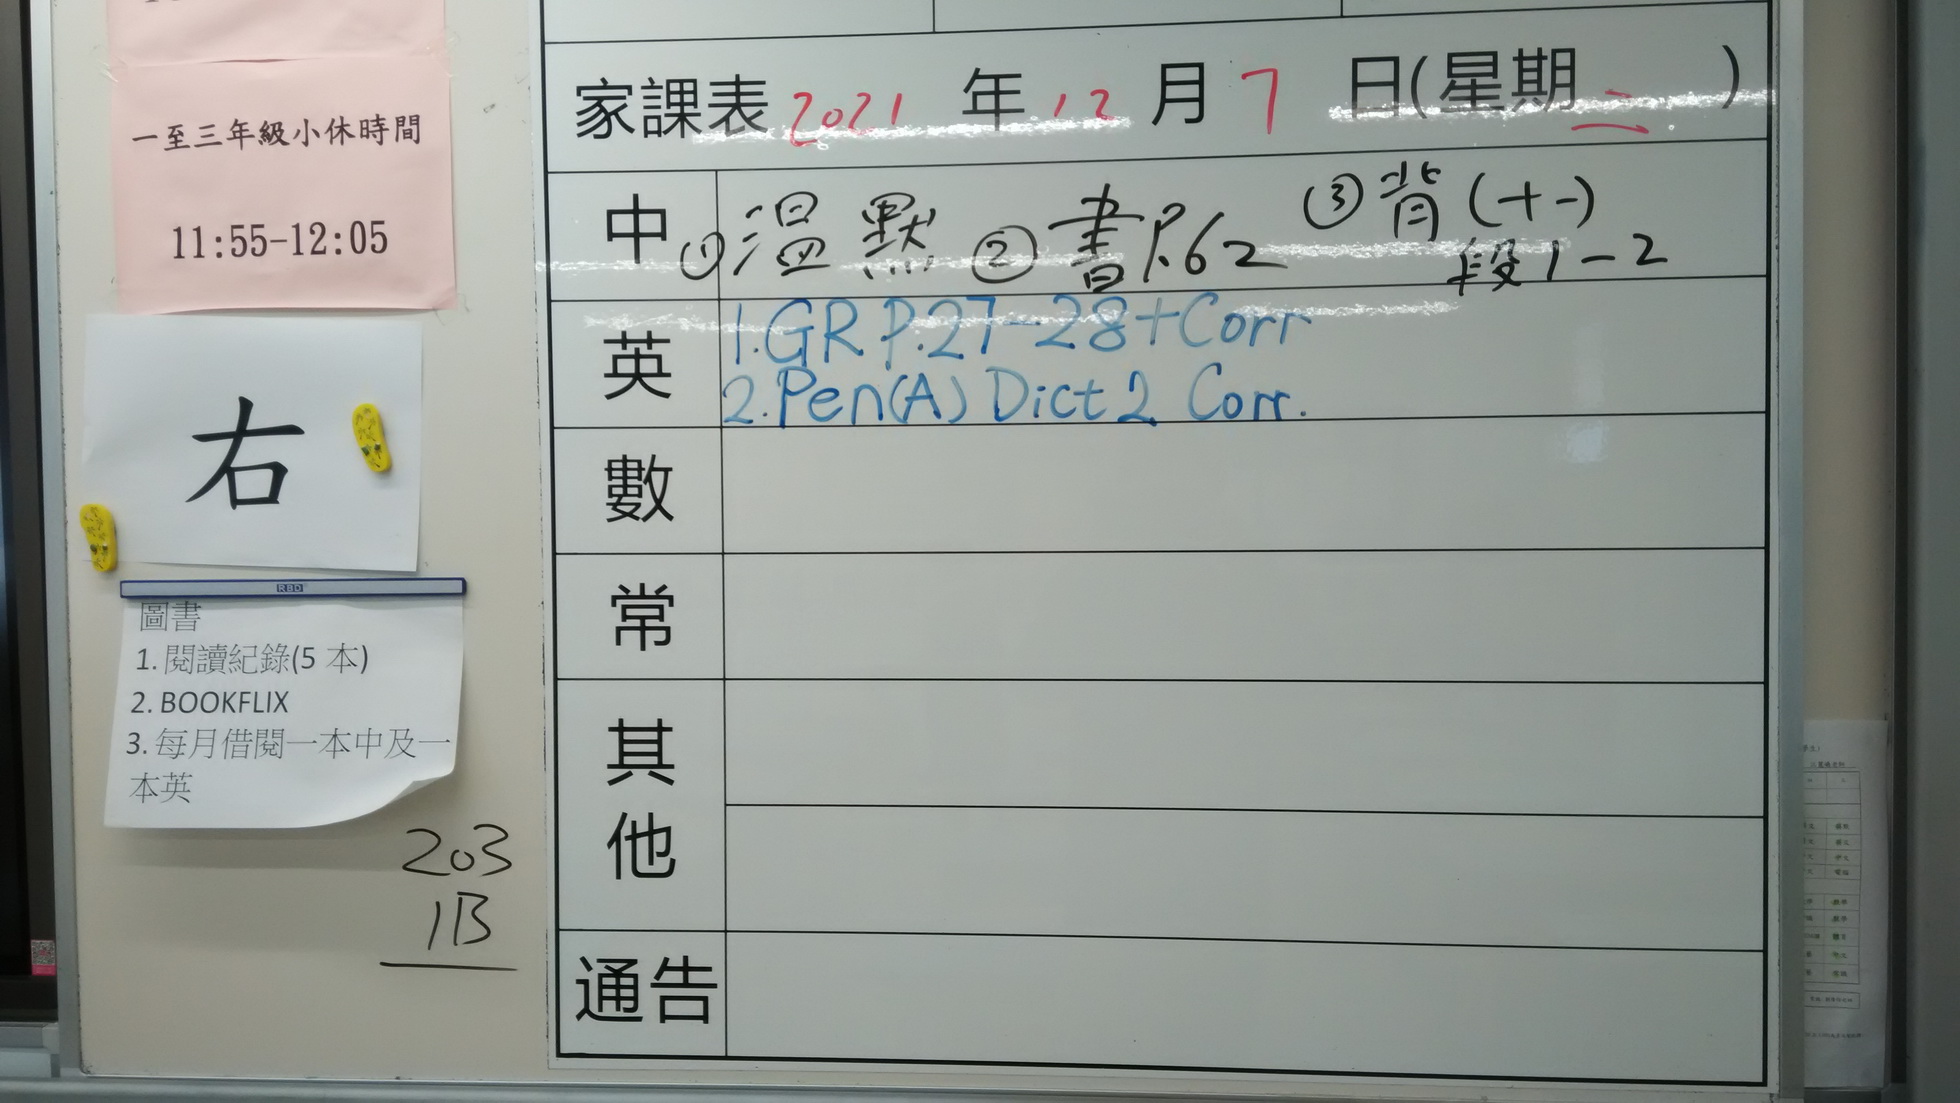 一至三年級小休時間
11:55-12:05
右
RBD
圖書
1. 閱讀紀錄(5 本)
2. BOOKFLIX
3. 每月借閱一本中及一
本英
203
1B
家課表 2021 年 12 月 7 日(星期二)
中 ①溫默 ②書P.62 ③背(十一)
段1-2
英 1.GR P.27-28+Corr
2.Pen(A) Dict 2 Corr.
數
常
其
他
通告